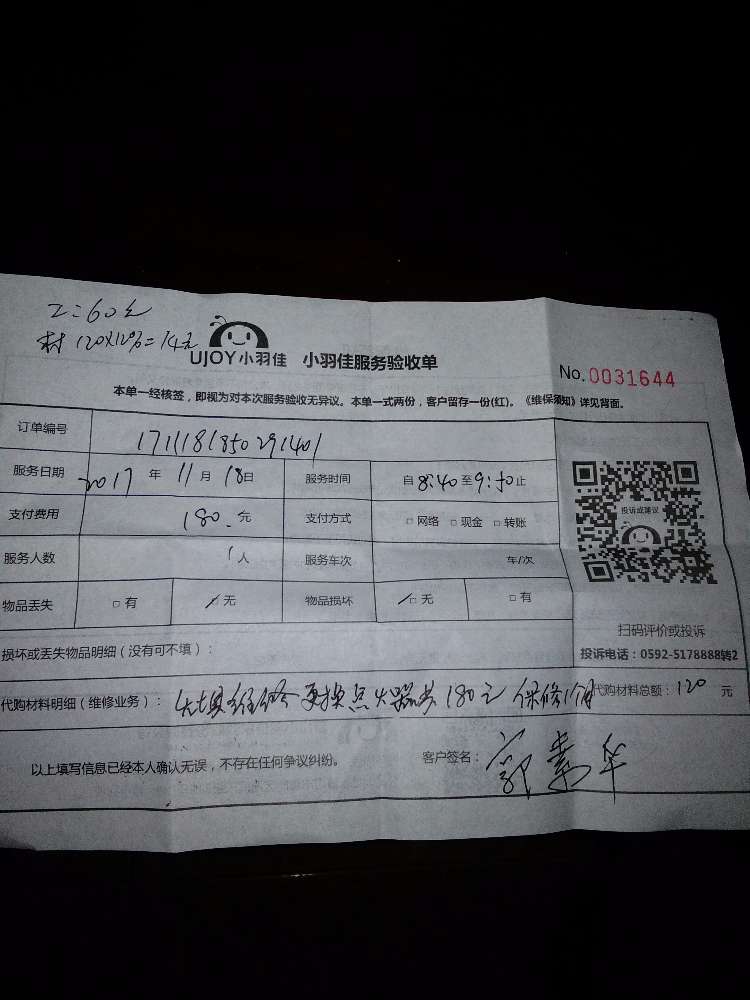 工:60元
材 120×12%=14元
UJOY小羽佳 小羽佳服务验收单
No.0031644
本单一经核签,即视为对本次服务验收无异议。本单一式两份,客户留存一份(红)。《维保须知》详见背面。
订单编号 1711181850291401
服务日期 2017 年 11 月 18 日 服务时间 自 8:40 至 9:50 止
支付费用 180. 元 支付方式 □网络 □现金 □转账
投诉或建议
服务人数 1 人 服务车次 车/次
物品丢失 □有 □无 物品损坏 □无 □有
扫码评价或投诉
投诉电话:0592-5178888转2
损坏或丢失物品明细(没有可不填):
代购材料明细(维修业务): 维修 更换点火器共180元 保修1个月 代购材料总额:120 元
以上填写信息已经本人确认无误,不存在任何争议纠纷。 客户签名: 郭素华